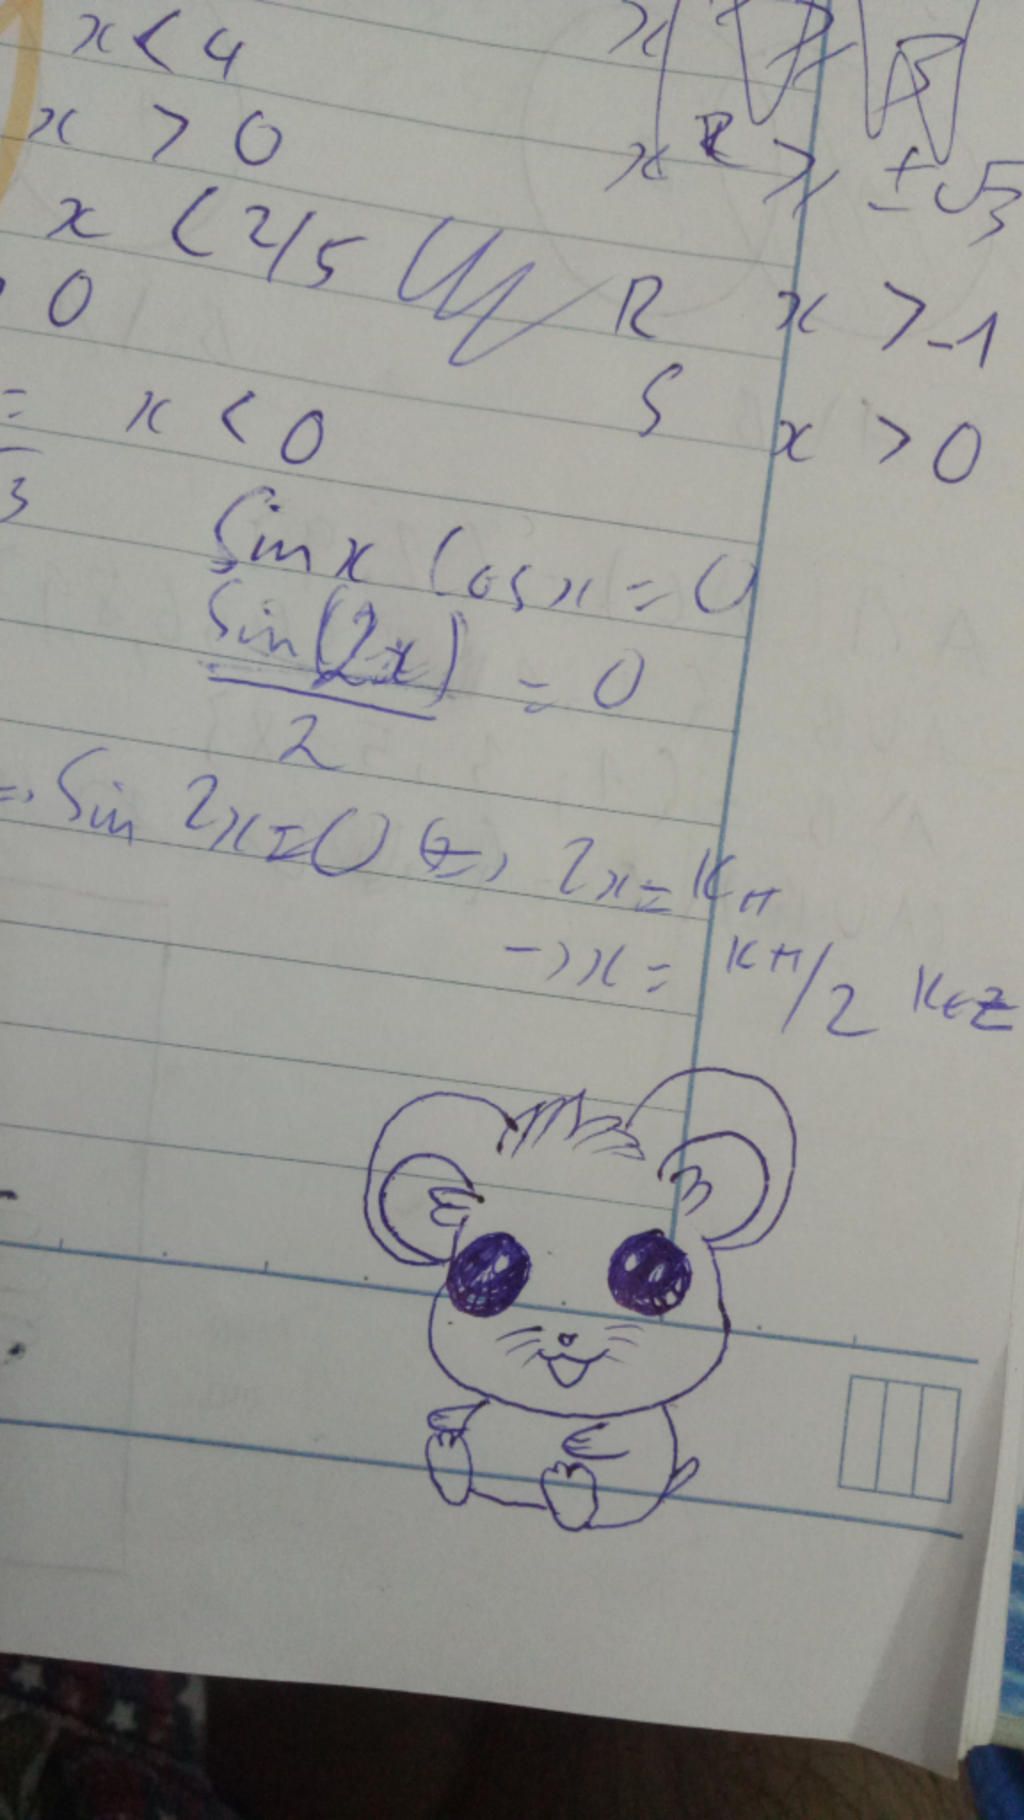 x < 4
x > 0
x < 2/5
0
= x < 0
3
x ≥ ± √3
R x > -1
S x > 0
Sin x Cos x = 0
Sin(2x)/2 = 0
=> Sin 2x = 0 <=> 2x = Kπ
-> x = Kπ/2 K ∈ Z